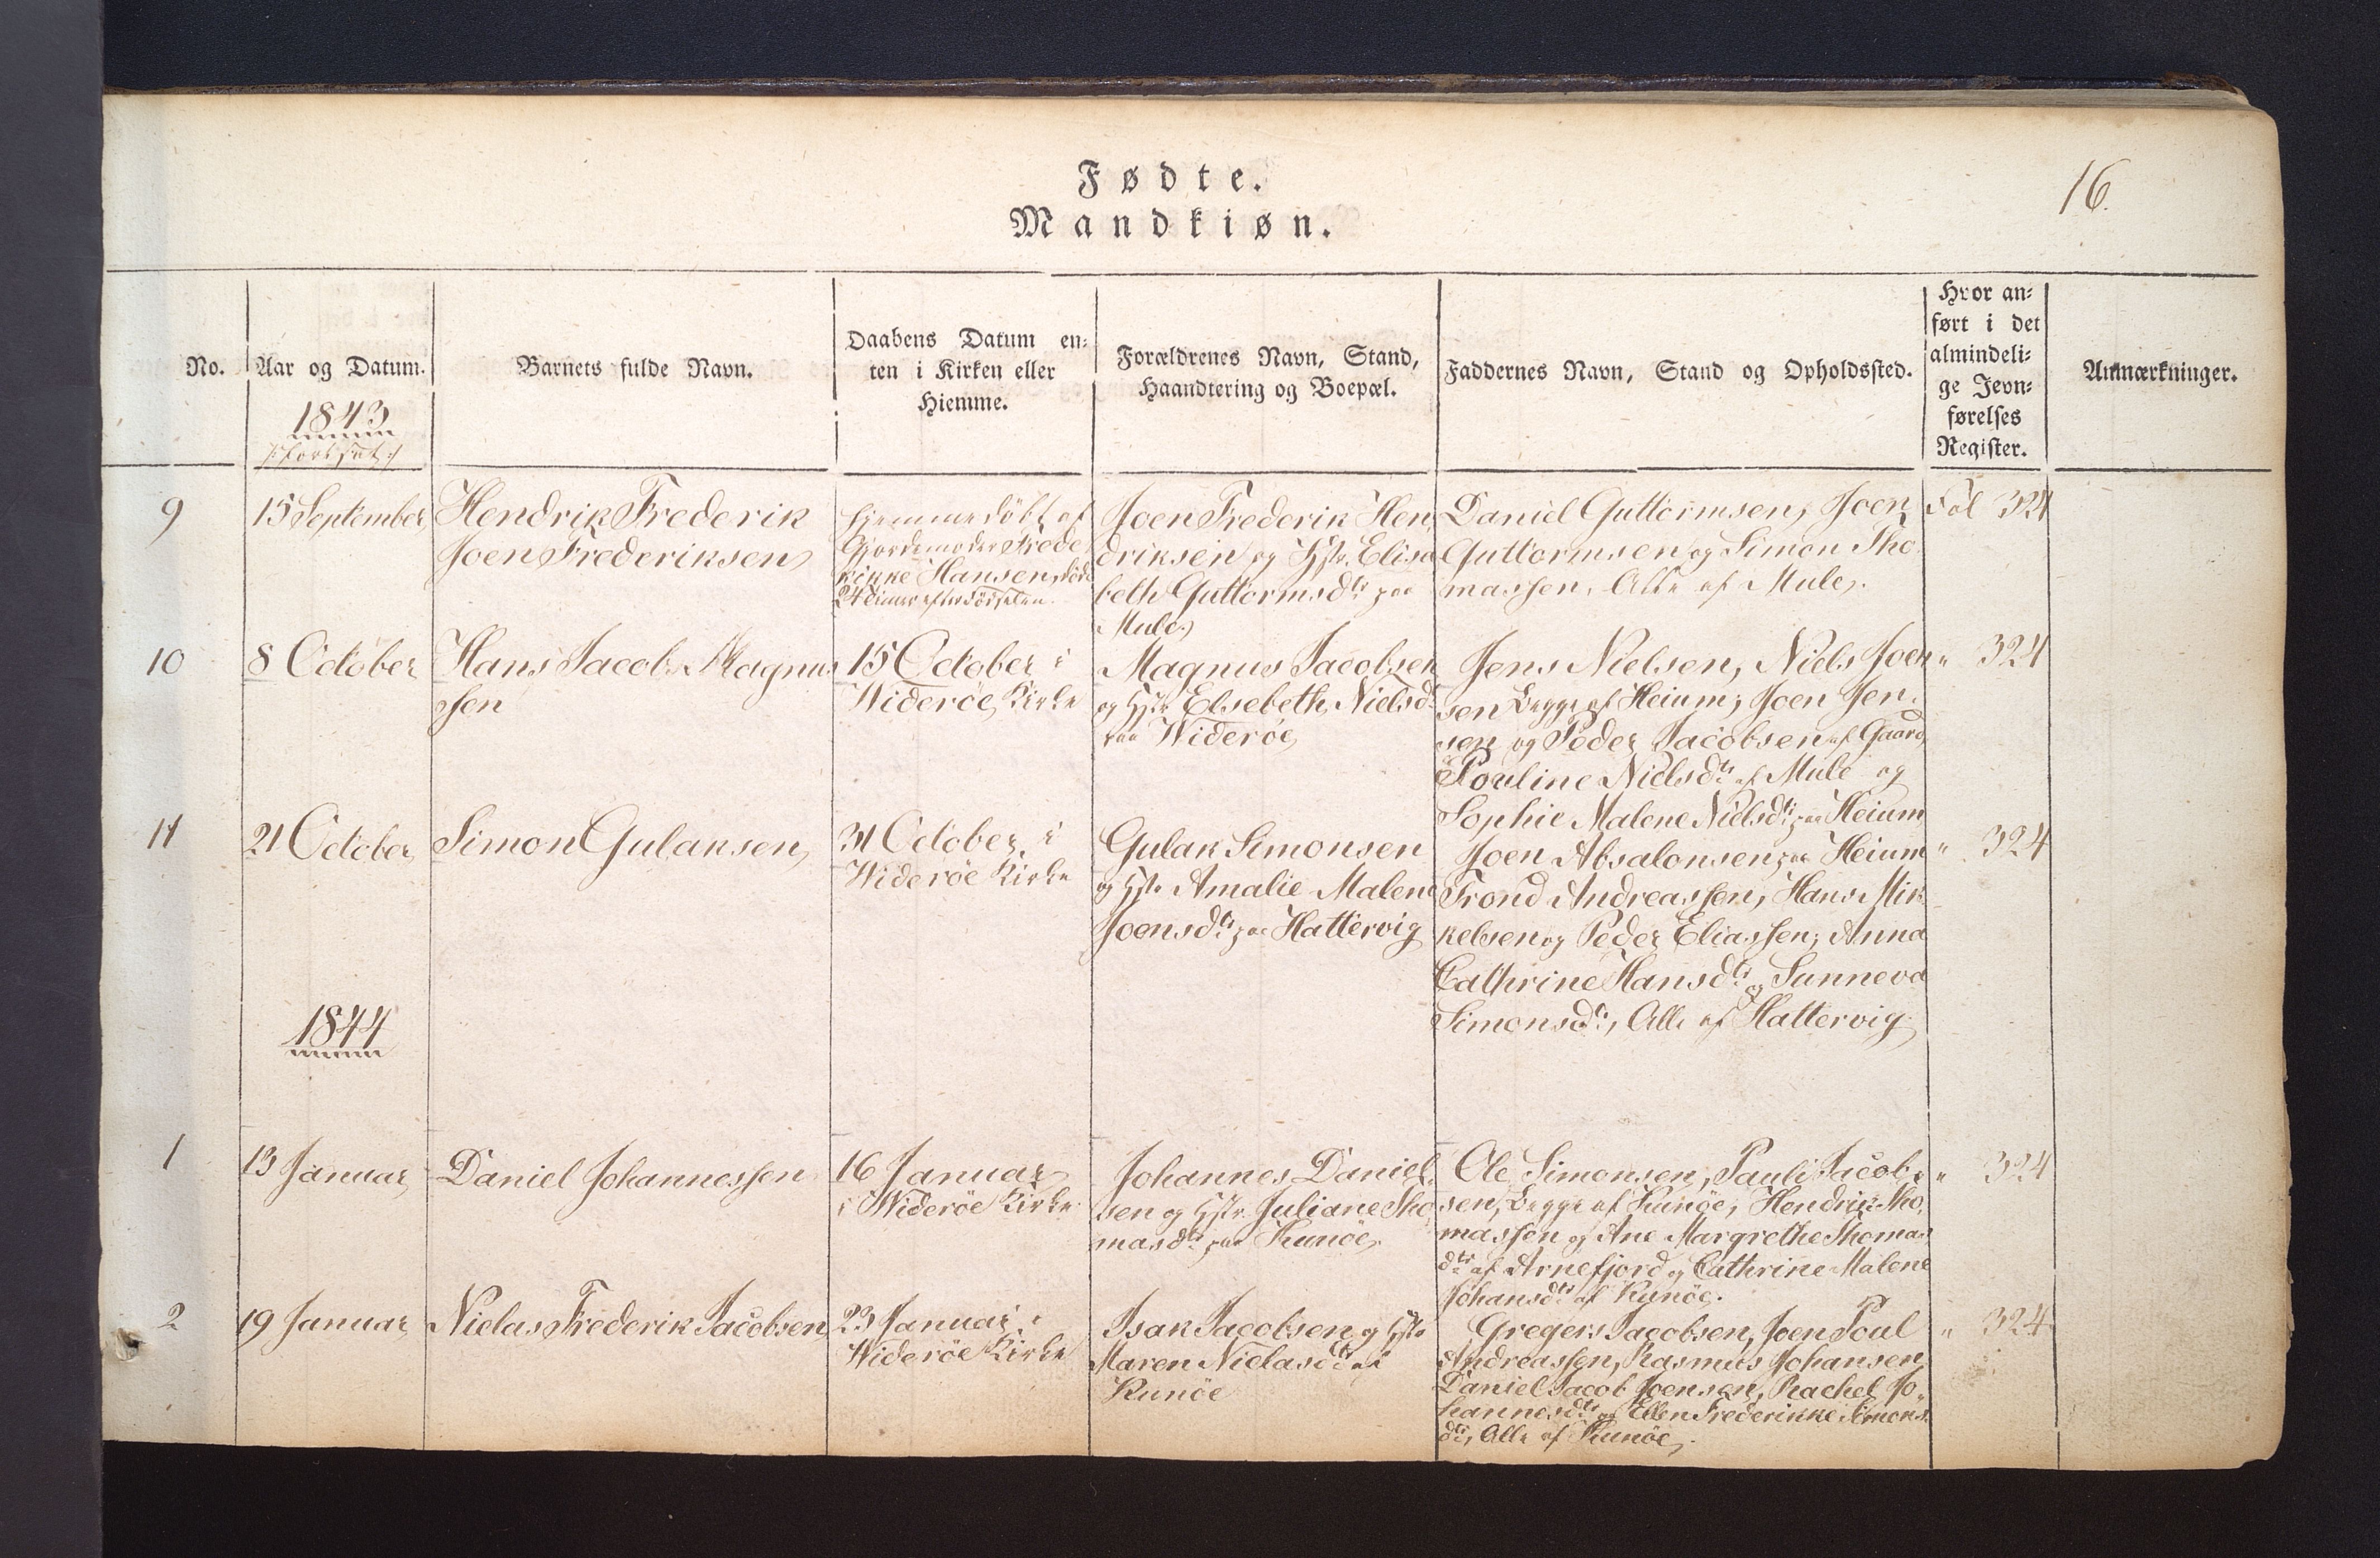 16.
Fødte.
Mandkiøn.
No.
Aar og Datum.
1843
Barnets fulde Navn.
Daabens Datum en-
ten i Kirken eller
Hiemme.
Forældrenes Navn, Stand,
Haandtering og Boepæl.
Faddernes Navn, Stand og Opholdssted.
Hvor an-
ført i det
almindeli-
ge Jevn-
førelses
Register.
Anmærkninger.
9
15 September
Hendrik Frederik
Joen Frederiksen
hjemmedöbt af
Gjordemoder Frede
rikke Hansen, döde
24 timer efter Födselen.
Joen Frederik Hen
driksen og Hstr. Elisa
beth Guttormsdtr paa
Mule.
Daniel Guttormsen, Joen
Guttormsen og Simon Tho
massen. Alle af Mule.
Fol 324
10
8 October
Hans Jacob Magnus
sen
15 October i
Wideröe Kirke
Magnus Jacobsen
og Hstr Elsebeth Nielsdtr
paa Wideröe
Jens Nielsen, Niels Joen
sen Begge af Heium; Joen Jen
sen og Peder Jacobsen af Gaard,
Pouline Nielsdtr af Mule og
Sophie Malene Nielsdtr paa Heium
" 324
11
21 October
Simon Gulaksen
31 October i
Wideröe Kirke
Gulak Simonsen
og Hstr Amalie Malene
Joensdtr paa Hattervig
Joen Absalonsen paa Heium
Trond Andreassen, Hans Mik
kelsen og Peder Eliassen; Anna
Cathrine Hansdtr og Sunneva
Simonsdtr, Alle af Hattervig
" 324
1844
1
13 Januar
Daniel Johannessen
16 Januar
i Wideröe Kirke
Johannes Daniel
sen og Hstr. Juliane Tho
masdtr paa Kunöe
Ole Simonsen, Pauli Jacob
sen, Begge af Kunöe; Hendrik Tho
massen og Ane Margrethe Thomas
dtr af Arnefjord og Cathrine Malene
Johansdtr af Kunöe.
" 324
2
19 Januar
Nielas Frederik Jacobsen
23 Januar i
Wideröe Kirke
Isak Jacobsen og Hstr
Maren Nielasdtr af
Kunöe
Gregers Jacobsen, Joen Poul
Andreassen, Rasmus Johansen
Daniel Jacob Joensen, Rachel Jo
hannesdtr og Ellen Frederikke Simons
dtr, Alle af Kunöe
" 324